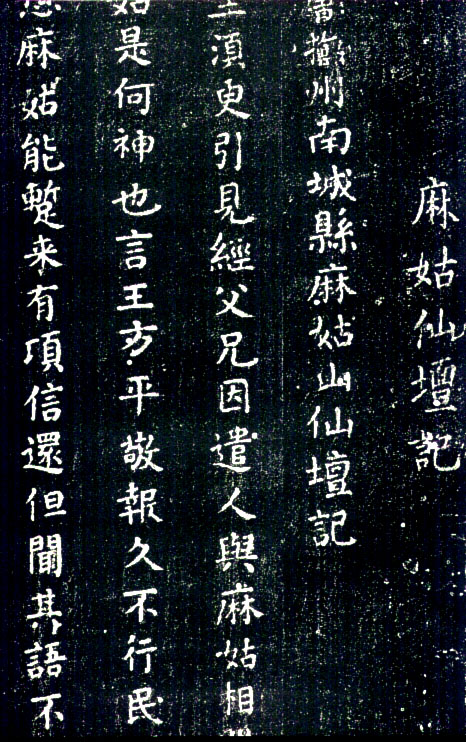 麻姑仙壇記
撫州南城縣麻姑山仙壇記
須臾引見經父兄因遣人與麻姑相
是何神也言王方平敬報久不行民
麻姑能蹔来有頃信還但聞其語不